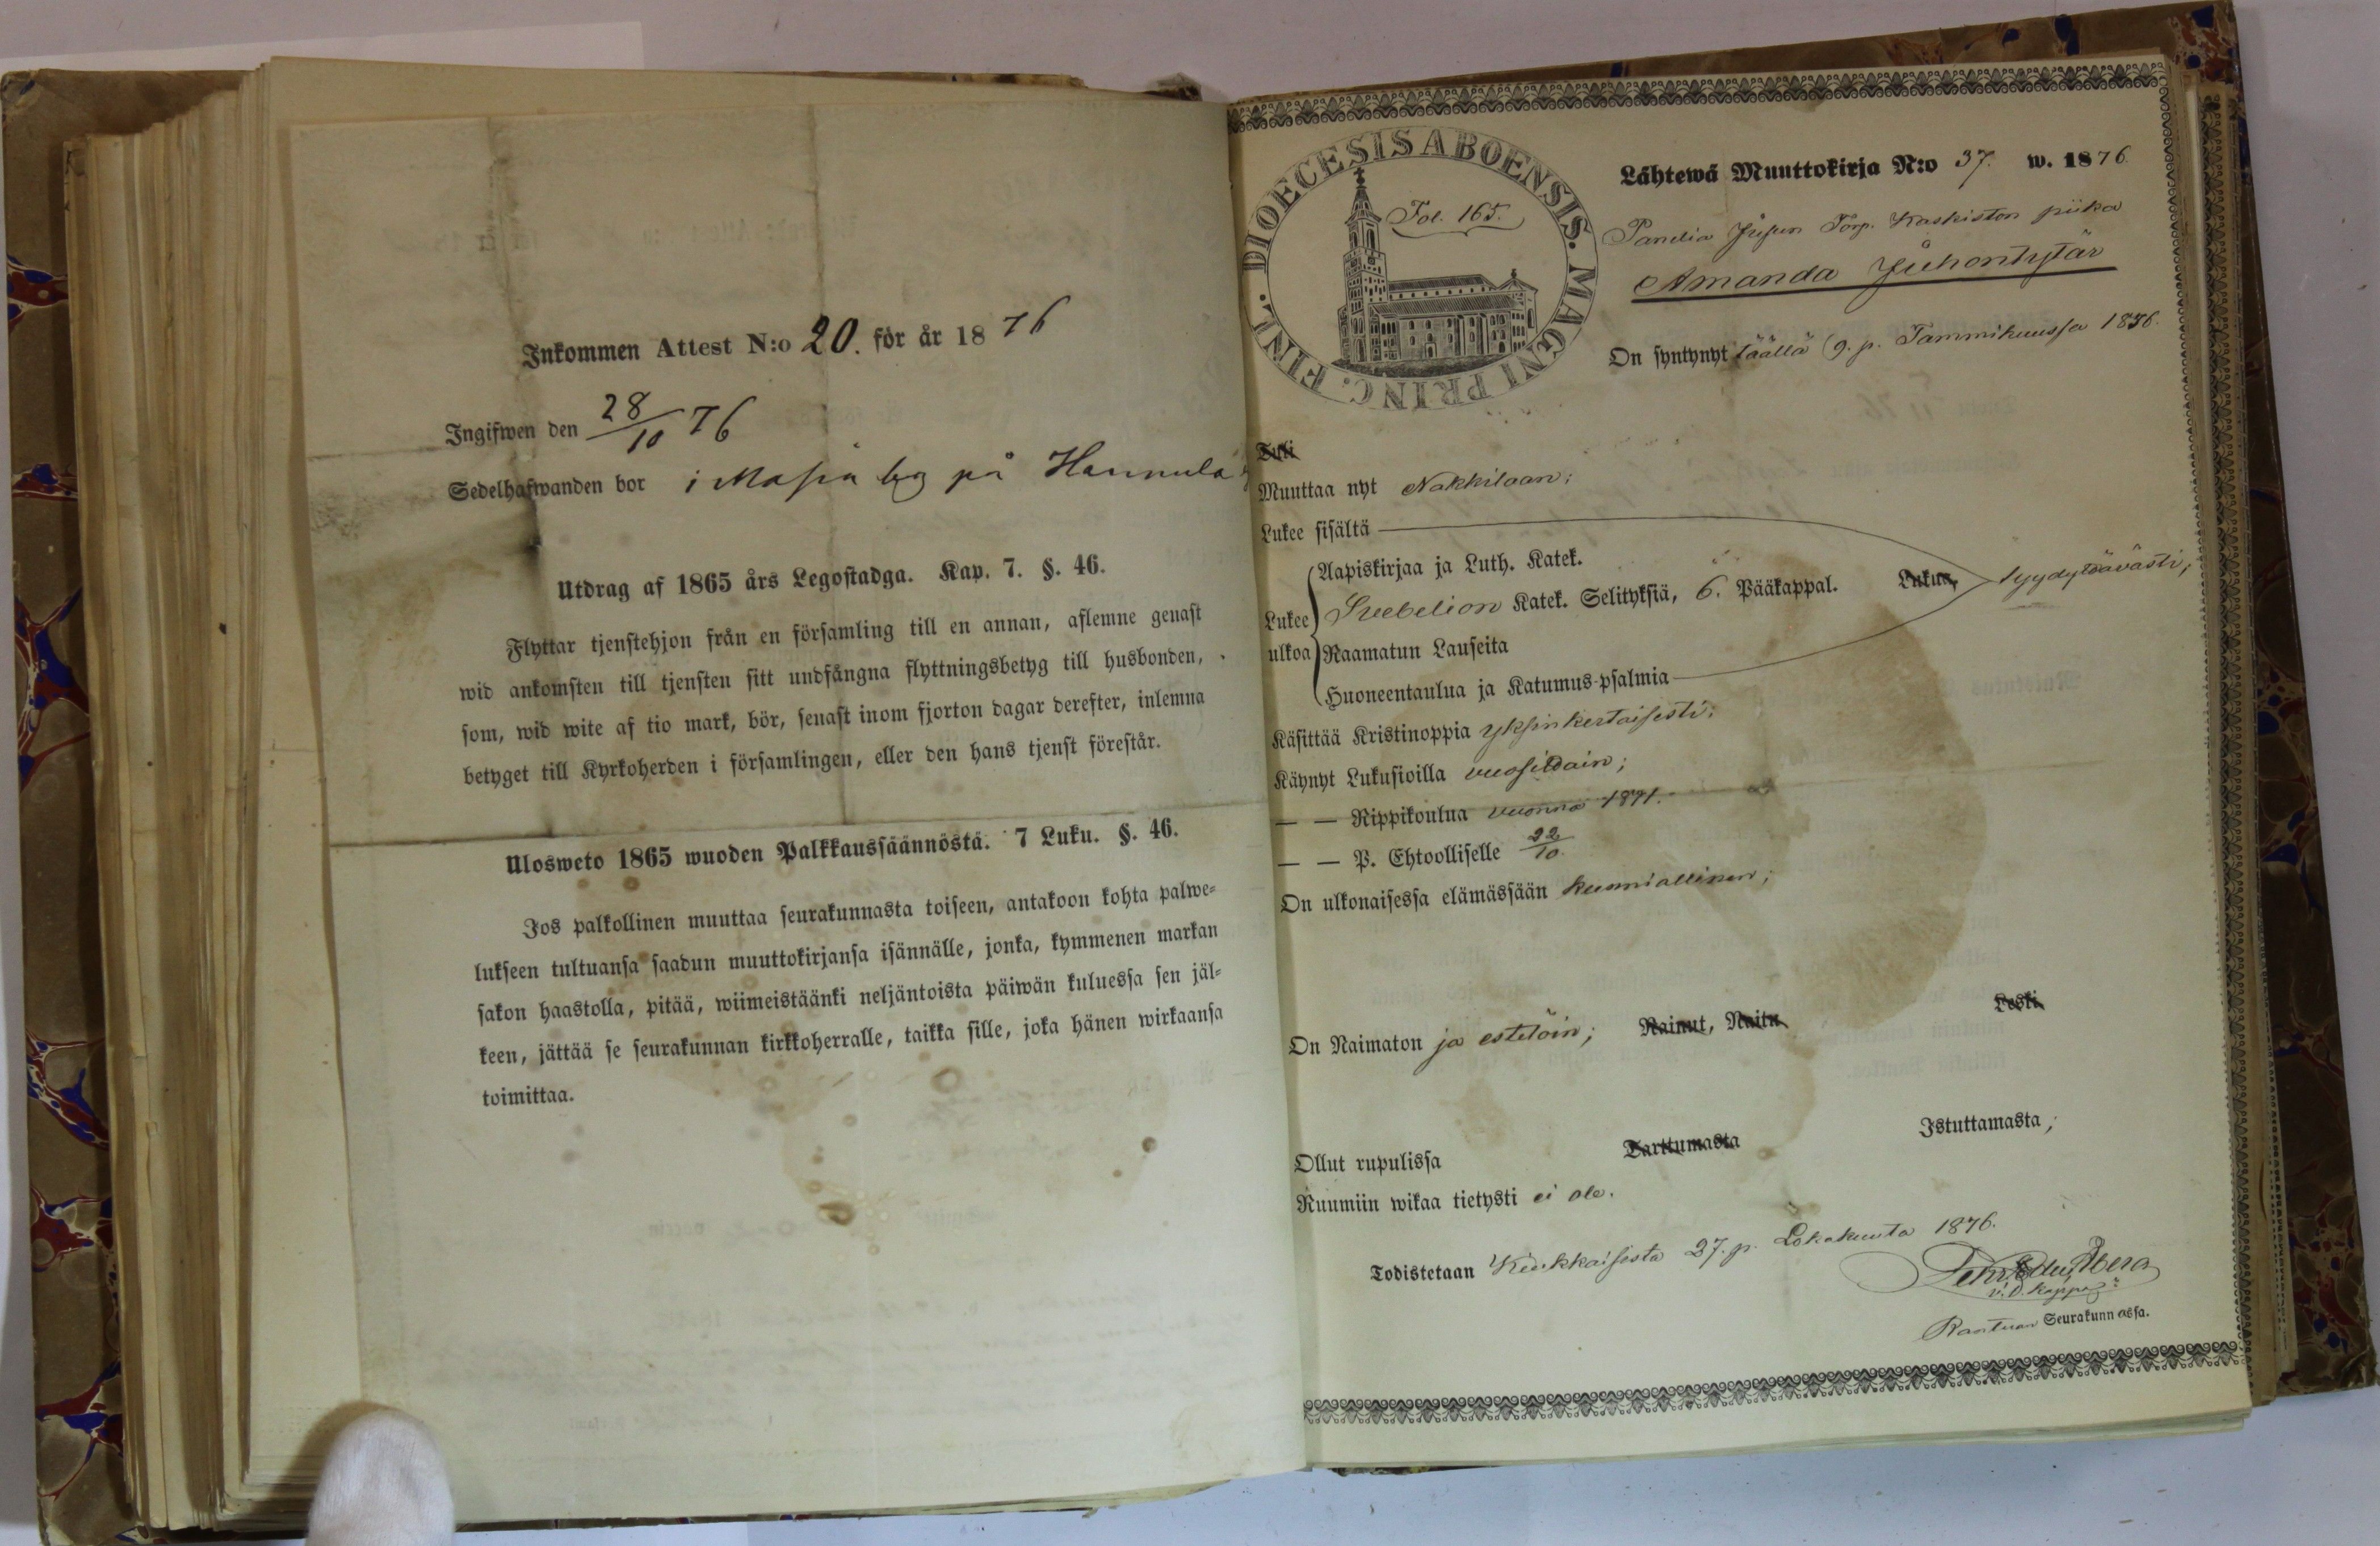 Inkommen Attest N:o 20. för år 1876
Ingifwen den 28/10 76
Sedelhafwanden bor i Masia by på Hannula
Utdrag af 1865 års Legostadga. Kap. 7. §. 46.
Flyttar tjenstehjon från en församling till en annan, aflemne genast
wid ankomsten till tjensten sitt undfångna flyttningsbetyg till husbonden,
som, wid wite af tio mark, bör, senast inom fjorton dagar derefter, inlemna
betyget till Kyrkoherden i församlingen, eller den hans tjenst förestår.
Ulosweto 1865 wuoden Palkkaussäännöstä. 7 Luku. §. 46.
Jos palkollinen muuttaa seurakunnasta toiseen, antakoon kohta palwe-
lukseen tultuansa saadun muuttokirjansa isännälle, jonka, kymmenen markan
sakon haastolla, pitää, wiimeistäänki neljäntoista päiwän kuluessa sen jäl-
keen, jättää se seurakunnan kirkkoherralle, taikka sille, joka hänen wirkaansa
toimittaa.
FINL. DIOECESIS ABOENSIS. MAGNI PRINC.
Fol. 165.
Lähtewä Muuttokirja N:o 37. w. 1876
Torp. Kaskiston piika
Amanda Juhontytär
On syntynyt täällä 9. p. Tammikuussa 1856.
Tuli
Muuttaa nyt Nakkilaan;
Lukee sisältä
Lukee ulkoa
Aapiskirjaa ja Luth. Katek.
Svebelion Katek. Selityksiä, 6. Pääkappal. Lukua, tyydyttävästi;
Raamatun Lauseita
Huoneentaulua ja Katumus-psalmia
Käsittää Kristinoppia yksinkertaisesti;
Käynyt Lukusioilla vuosittain;
— — Rippikoulua vuonna 1871.
— — P. Ehtoolliselle 22/10.
On ulkonaisessa elämässään kunniallinen;
On Naimaton ja estetöin; Nainut, Naitu Leski
Ollut rupulissa Tarttumasta Istuttamasta;
Ruumiin wikaa tietysti ei ole.
Todistetaan Kiukkaisista 27. p. Lokakuuta 1876.
v. D. Kappal:
Seurakunnassa.